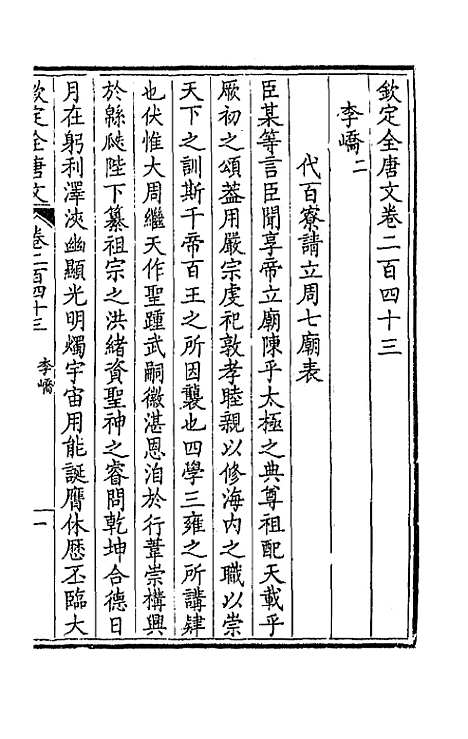 欽定全唐文卷二百四十三
李嶠二
代百寮請立周七廟表
臣某等言臣聞享帝立廟陳乎太極之典尊祖配天載乎
厥初之頌葢用嚴宗虔祀敦孝睦親以修海內之職以崇
天下之訓斯千帝百王之所因襲也四學三雍之所講肄
也伏惟大周繼天作聖踵武嗣徽湛恩洎於行葦崇構興
於緜瓞陛下纂祖宗之洪緒資聖神之睿問乾坤合德日
月在躬利澤浹幽顯光明燭宇宙用能誕膺休厯丕臨大
欽定全唐文
卷二百四十三
李嶠
一